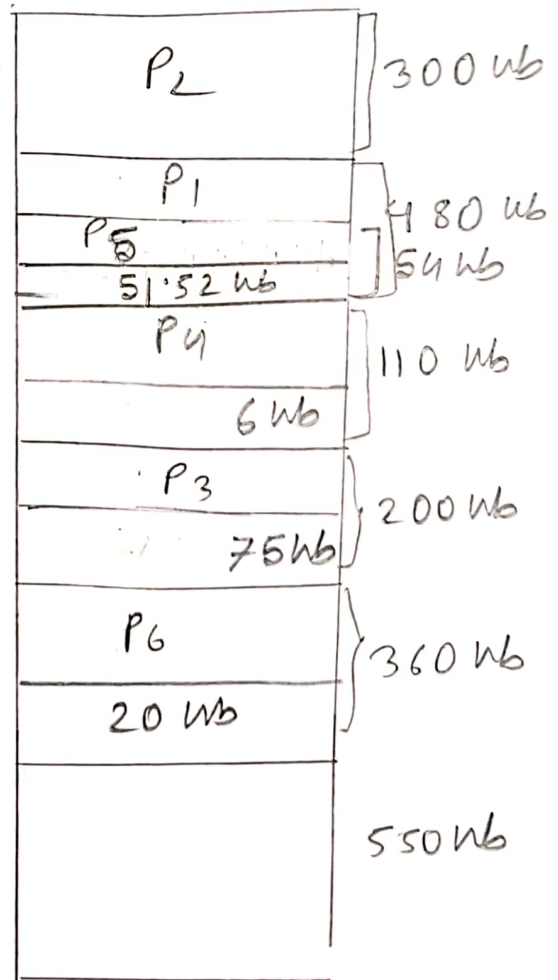 P2 300 Wb
P1
480 Wb
P5
54 Wb
51.52 Wb
P4
110 Wb
6 Wb
P3
200 Wb
75 Wb
P6
360 Wb
20 Wb
550 Wb